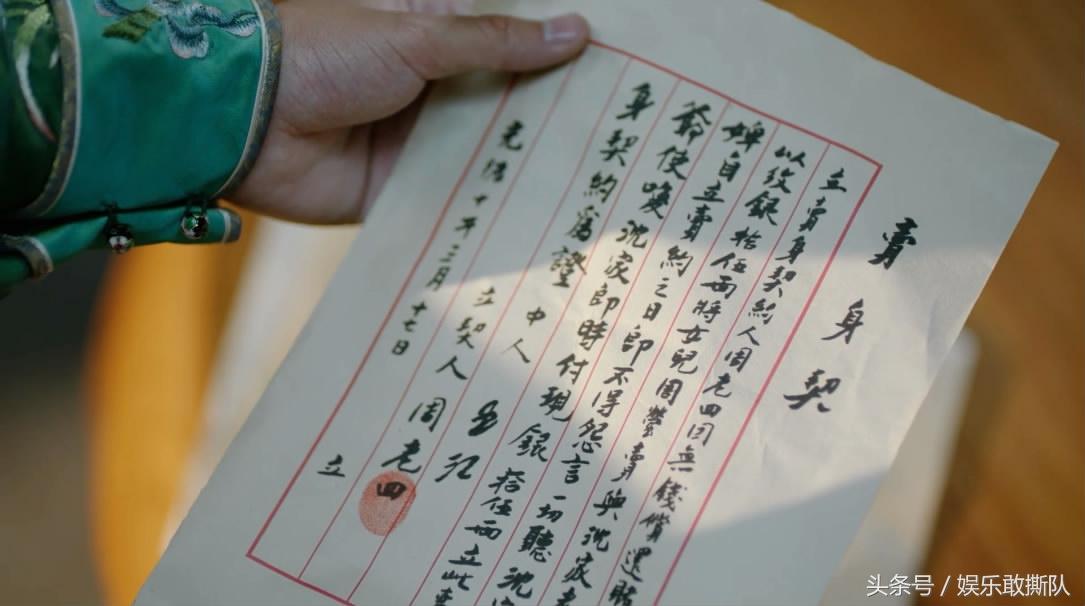 賣身契
立賣身契約人周老四因無錢償還
以紋銀拾伍兩將女兒周瑩賣與沈家
婢自立賣約之日即不得怨言一切聽沈
爺使喚沈家即時付現銀拾伍兩立此賣
身契約為證
中人
立契人 周老四
光緒十年三月十七日 立
头条号 / 娱乐敢撕队